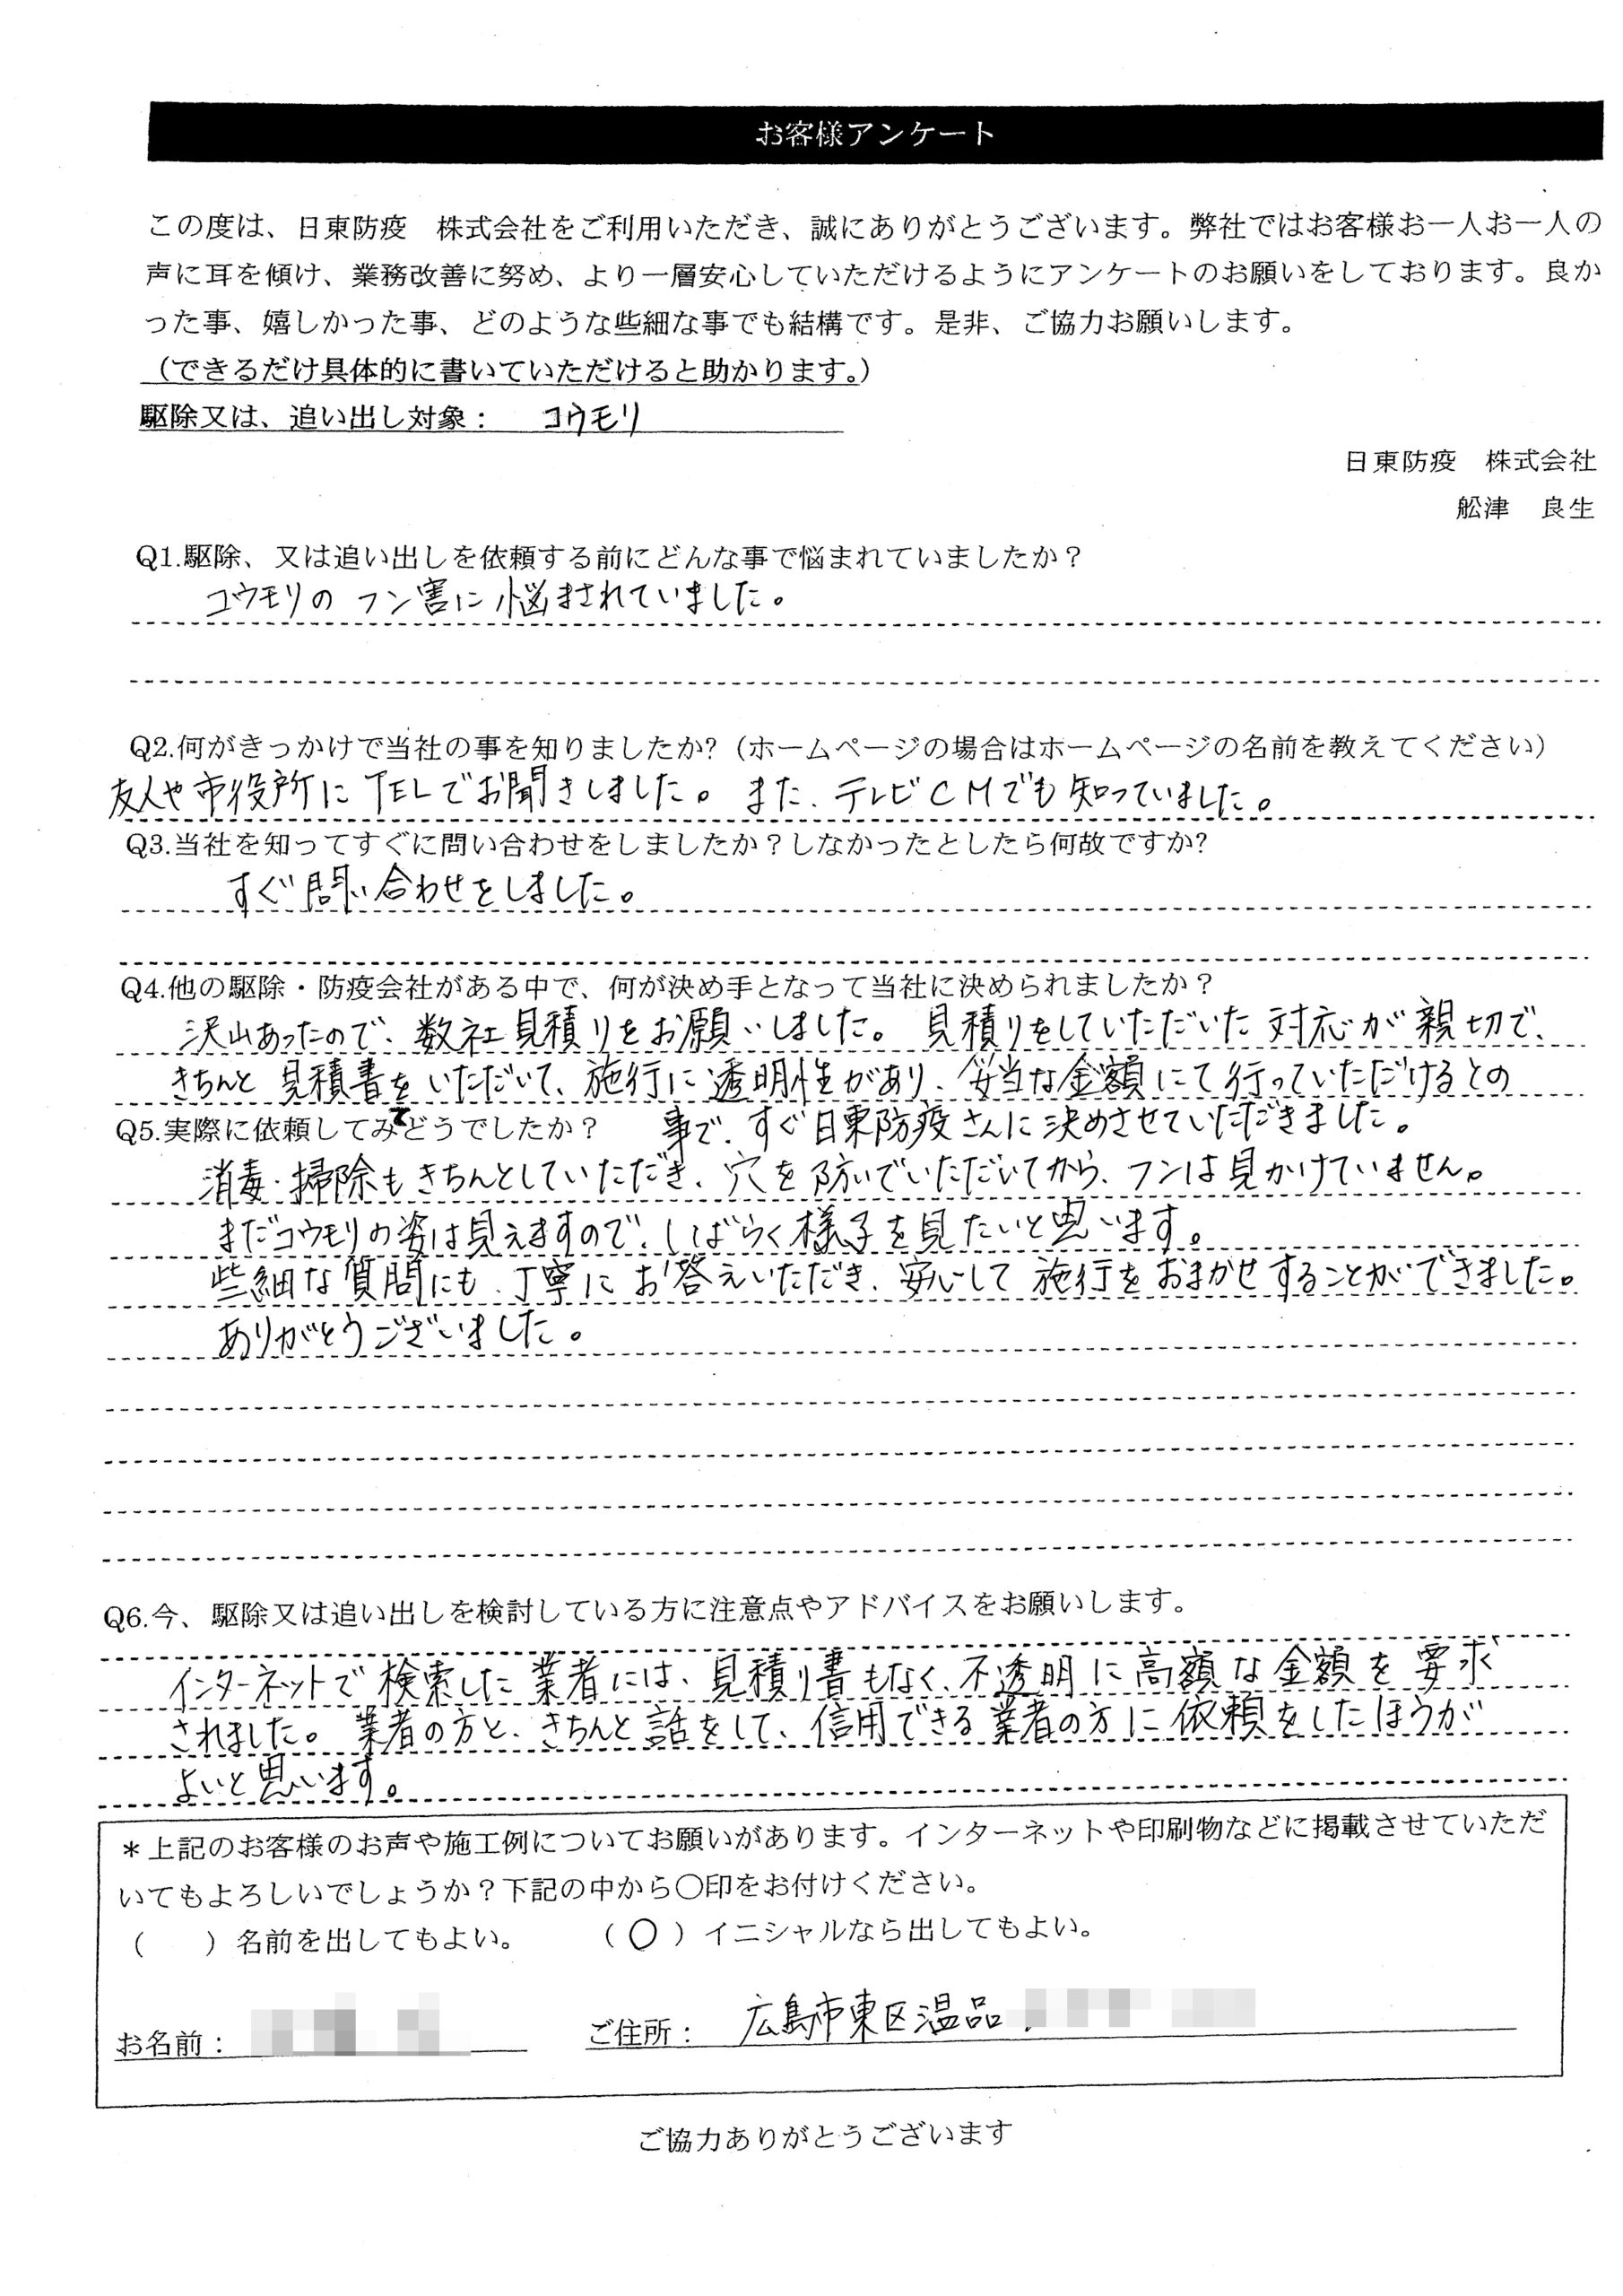 お客様アンケート
この度は、日東防疫　株式会社をご利用いただき、誠にありがとうございます。弊社ではお客様お一人お一人の
声に耳を傾け、業務改善に努め、より一層安心していただけるようにアンケートのお願いをしております。良か
った事、嬉しかった事、どのような些細な事でも結構です。是非、ご協力お願いします。
（できるだけ具体的に書いていただけると助かります。）
駆除又は、追い出し対象：　コウモリ
日東防疫　株式会社
舩津　良生
Q1.駆除、又は追い出しを依頼する前にどんな事で悩まれていましたか？
コウモリのフン害に悩まされていました。
Q2.何がきっかけで当社の事を知りましたか?（ホームページの場合はホームページの名前を教えてください）
友人や市役所にTELでお聞きしました。また、テレビCMでも知っていました。
Q3.当社を知ってすぐに問い合わせをしましたか？しなかったとしたら何故ですか?
すぐ問い合わせをしました。
Q4.他の駆除・防疫会社がある中で、何が決め手となって当社に決められましたか？
沢山あったので、数社見積りをお願いしました。見積りをしていただいた対応が親切で、
きちんと見積書をいただいて、施行に透明性があり、妥当な金額にて行っていただけるとの
事で、すぐ日東防疫さんに決めさせていただきました。
Q5.実際に依頼してみてどうでしたか？
消毒・掃除もきちんとしていただき、穴を防いでいただいてから、フンは見かけていません。
まだコウモリの姿は見えますので、しばらく様子を見たいと思います。
些細な質問にも、丁寧にお答えいただき、安心して施行をおまかせすることができました。
ありがとうございました。
Q6.今、駆除又は追い出しを検討している方に注意点やアドバイスをお願いします。
インターネットで検索した業者には、見積り書もなく、不透明に高額な金額を要求
されました。業者の方と、きちんと話をして、信用できる業者の方に依頼をしたほうが
よいと思います。
＊上記のお客様のお声や施工例についてお願いがあります。インターネットや印刷物などに掲載させていただ
いてもよろしいでしょうか？下記の中から〇印をお付けください。
（　　）名前を出してもよい。　　（〇）イニシャルなら出してもよい。
お名前：　　ご住所：　広島市東区温品
ご協力ありがとうございます